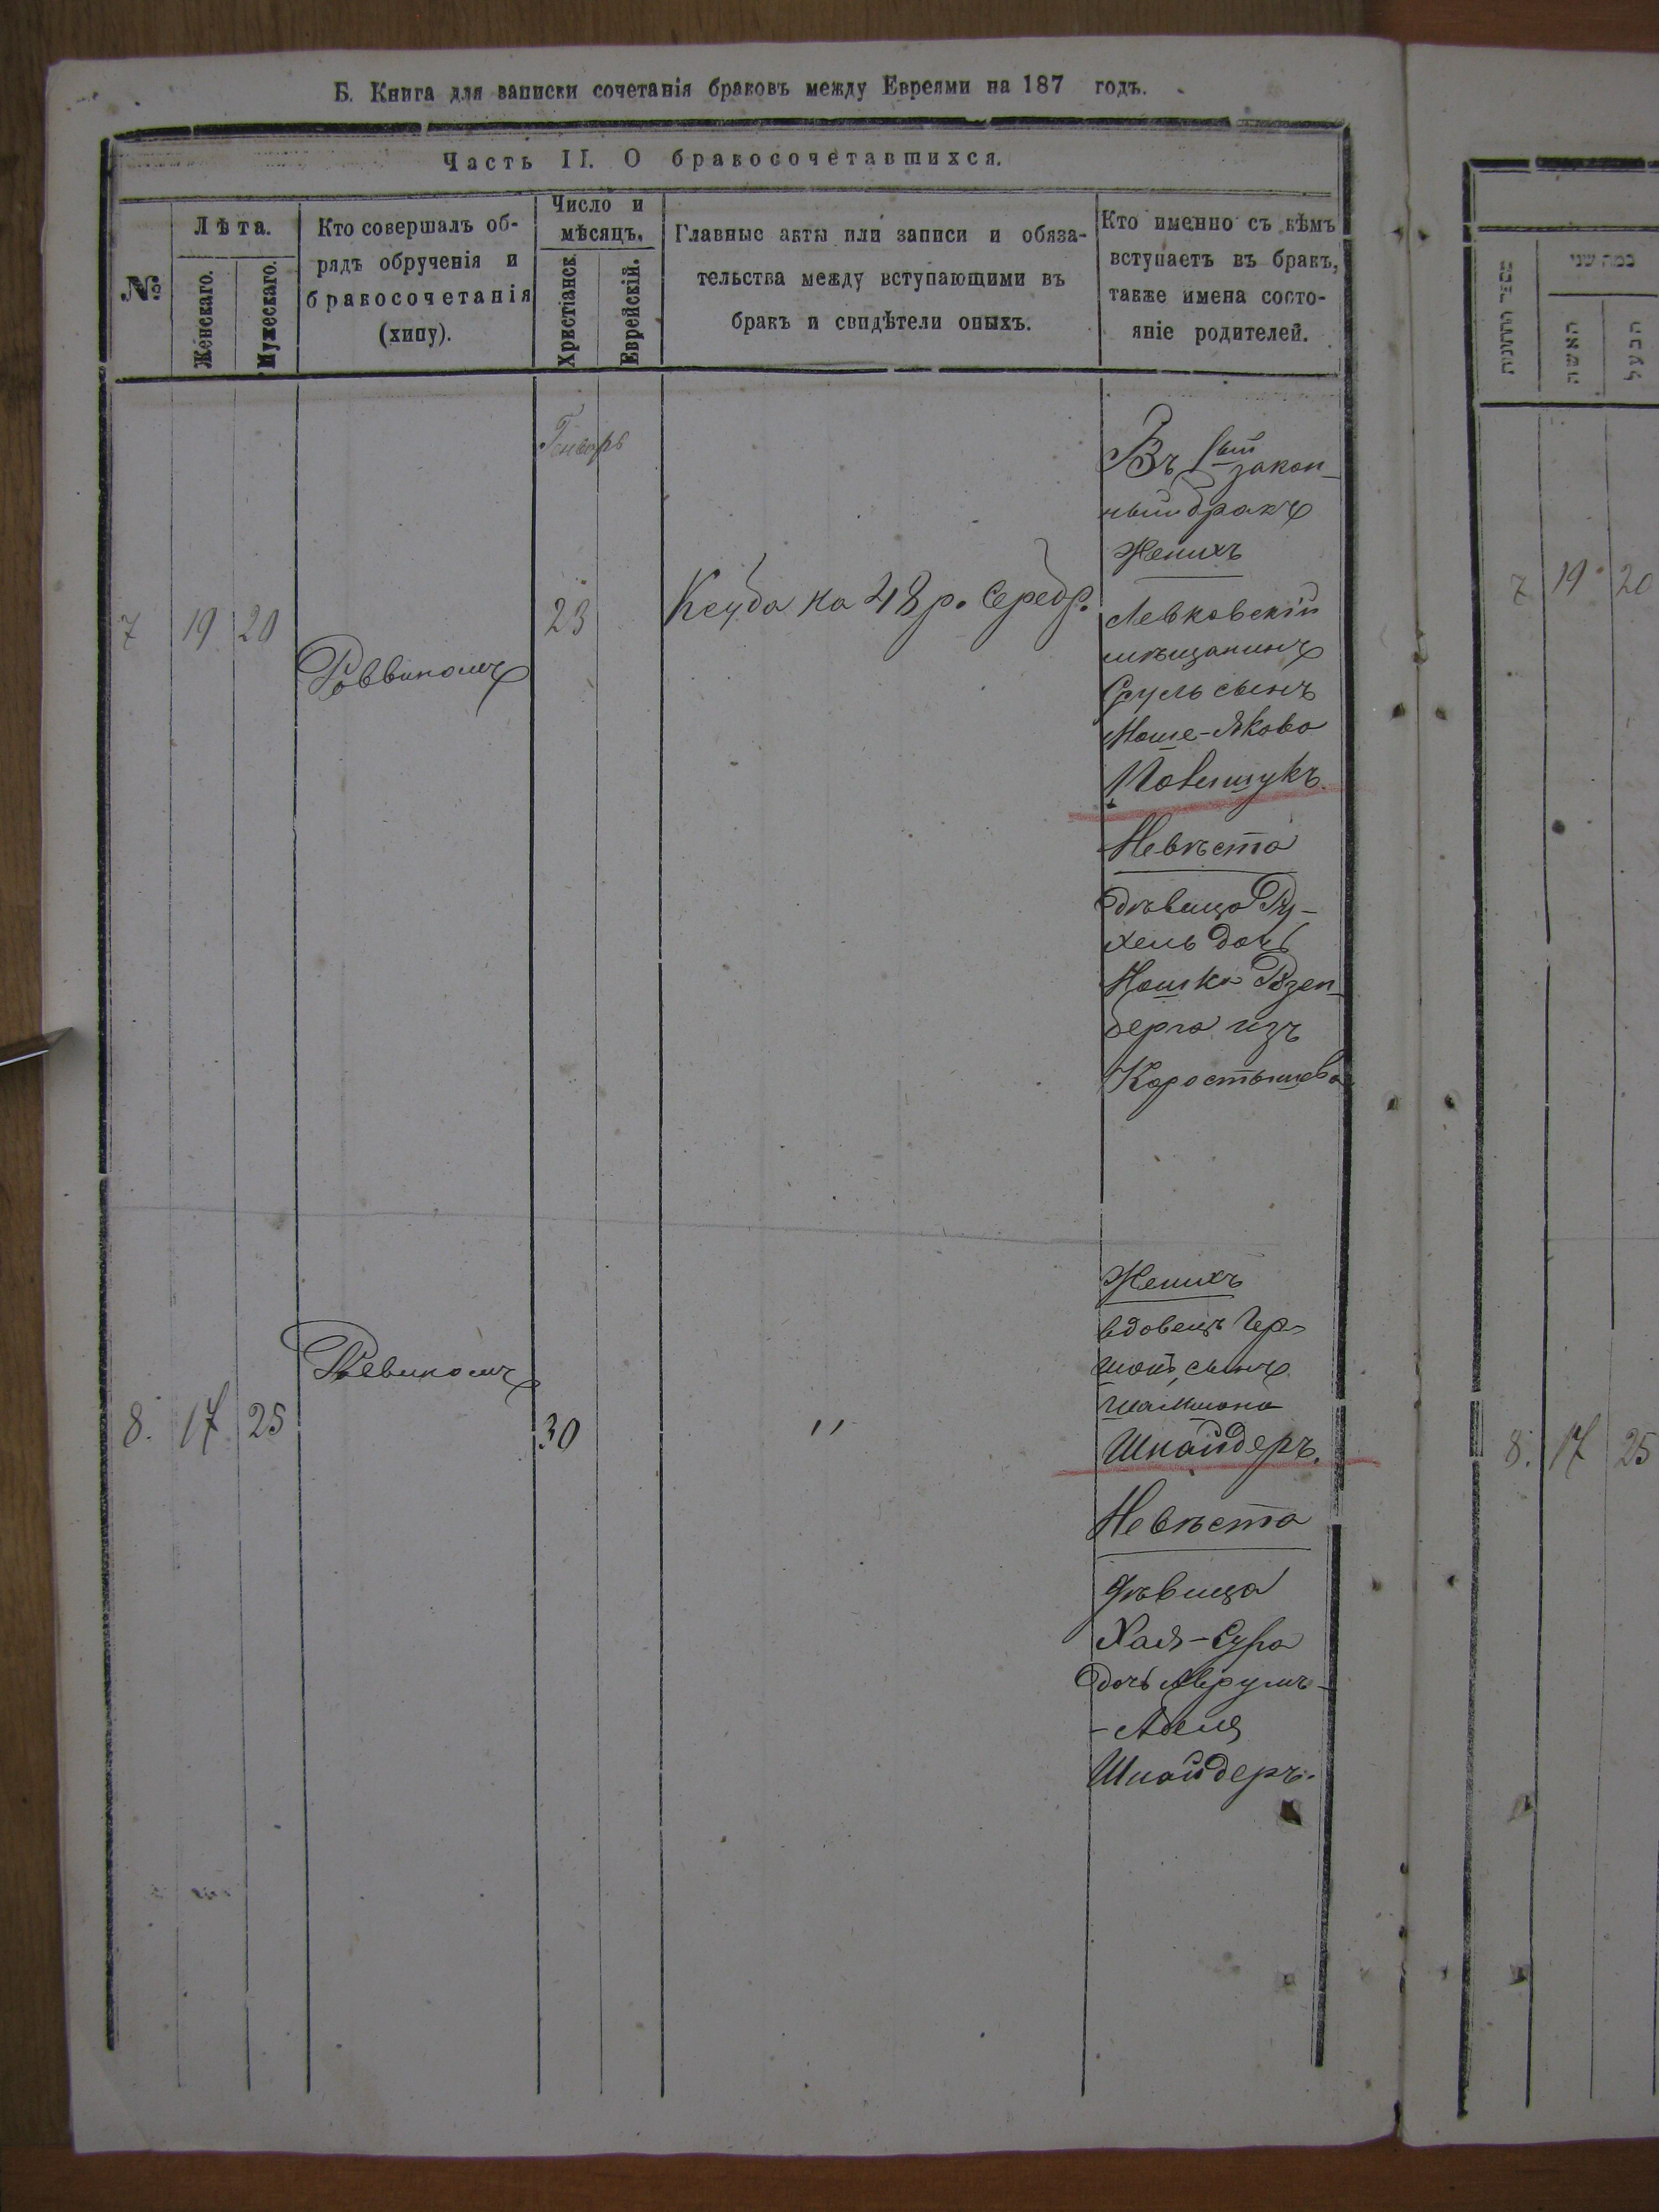 Б. Книга для записки сочетанія браковъ между Евреями на 187 годъ.
Часть II. О бракосочетавшихся.
№
Лѣта.
Женскаго.
Мужескаго.
Кто совершалъ об-
рядъ обрученія и
бракосочетанія
(хипу).
Число и
мѣсяцъ.
Христіанск.
Еврейскій.
Главные акты или записи и обяза-
тельства между вступающими въ
бракъ и свидѣтели оныхъ.
Кто именно съ кѣмъ
вступаетъ въ бракъ,
также имена состо-
яніе родителей.
Генварь
7 19 20
Раввиномъ
23
Ксуба на 48 р. серебр.
Въ 1ый закон-
ный бракъ
Женихъ
Левковскій
мѣщанинъ
Сруль сынъ
Мошe-Якова
Женихъ
Невѣста
дѣвица Ру-
хель дочь
Мошка Розен-
берга изъ
Коростышева
8. 17 25
Раввиномъ
30
״
Женихъ
вдовецъ Гер-
шонъ сынъ
Шнайдеръ.
Невѣста
Дѣвица
Хая-Сура
дочь Аврумъ-
-Абеля
Шнайдеръ.
מספר החתונות
כמה שני
האשה
הבעל
7 19 20
8. 17 25